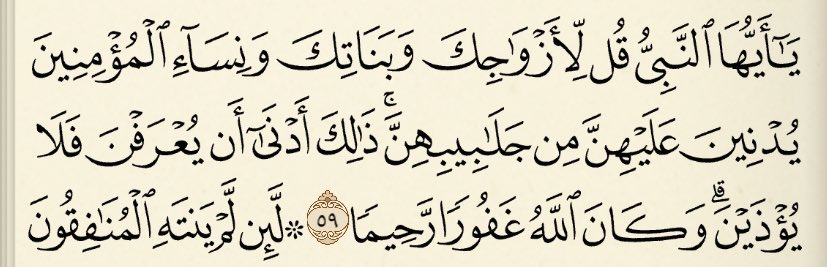 يَـٰٓأَيُّهَا ٱلنَّبِىُّ قُل لِّأَزْوَٰجِكَ وَبَنَاتِكَ وَنِسَآءِ ٱلْمُؤْمِنِينَ
يُدْنِينَ عَلَيْهِنَّ مِن جَلَـٰبِيبِهِنَّ ۚ ذَٰلِكَ أَدْنَىٰٓ أَن يُعْرَفْنَ فَلَا
يُؤْذَيْنَ ۗ وَكَانَ ٱللَّهُ غَفُورًا رَّحِيمًا ٥٩ ۞ لَّئِن لَّمْ يَنتَهِ ٱلْمُنَـٰفِقُونَ